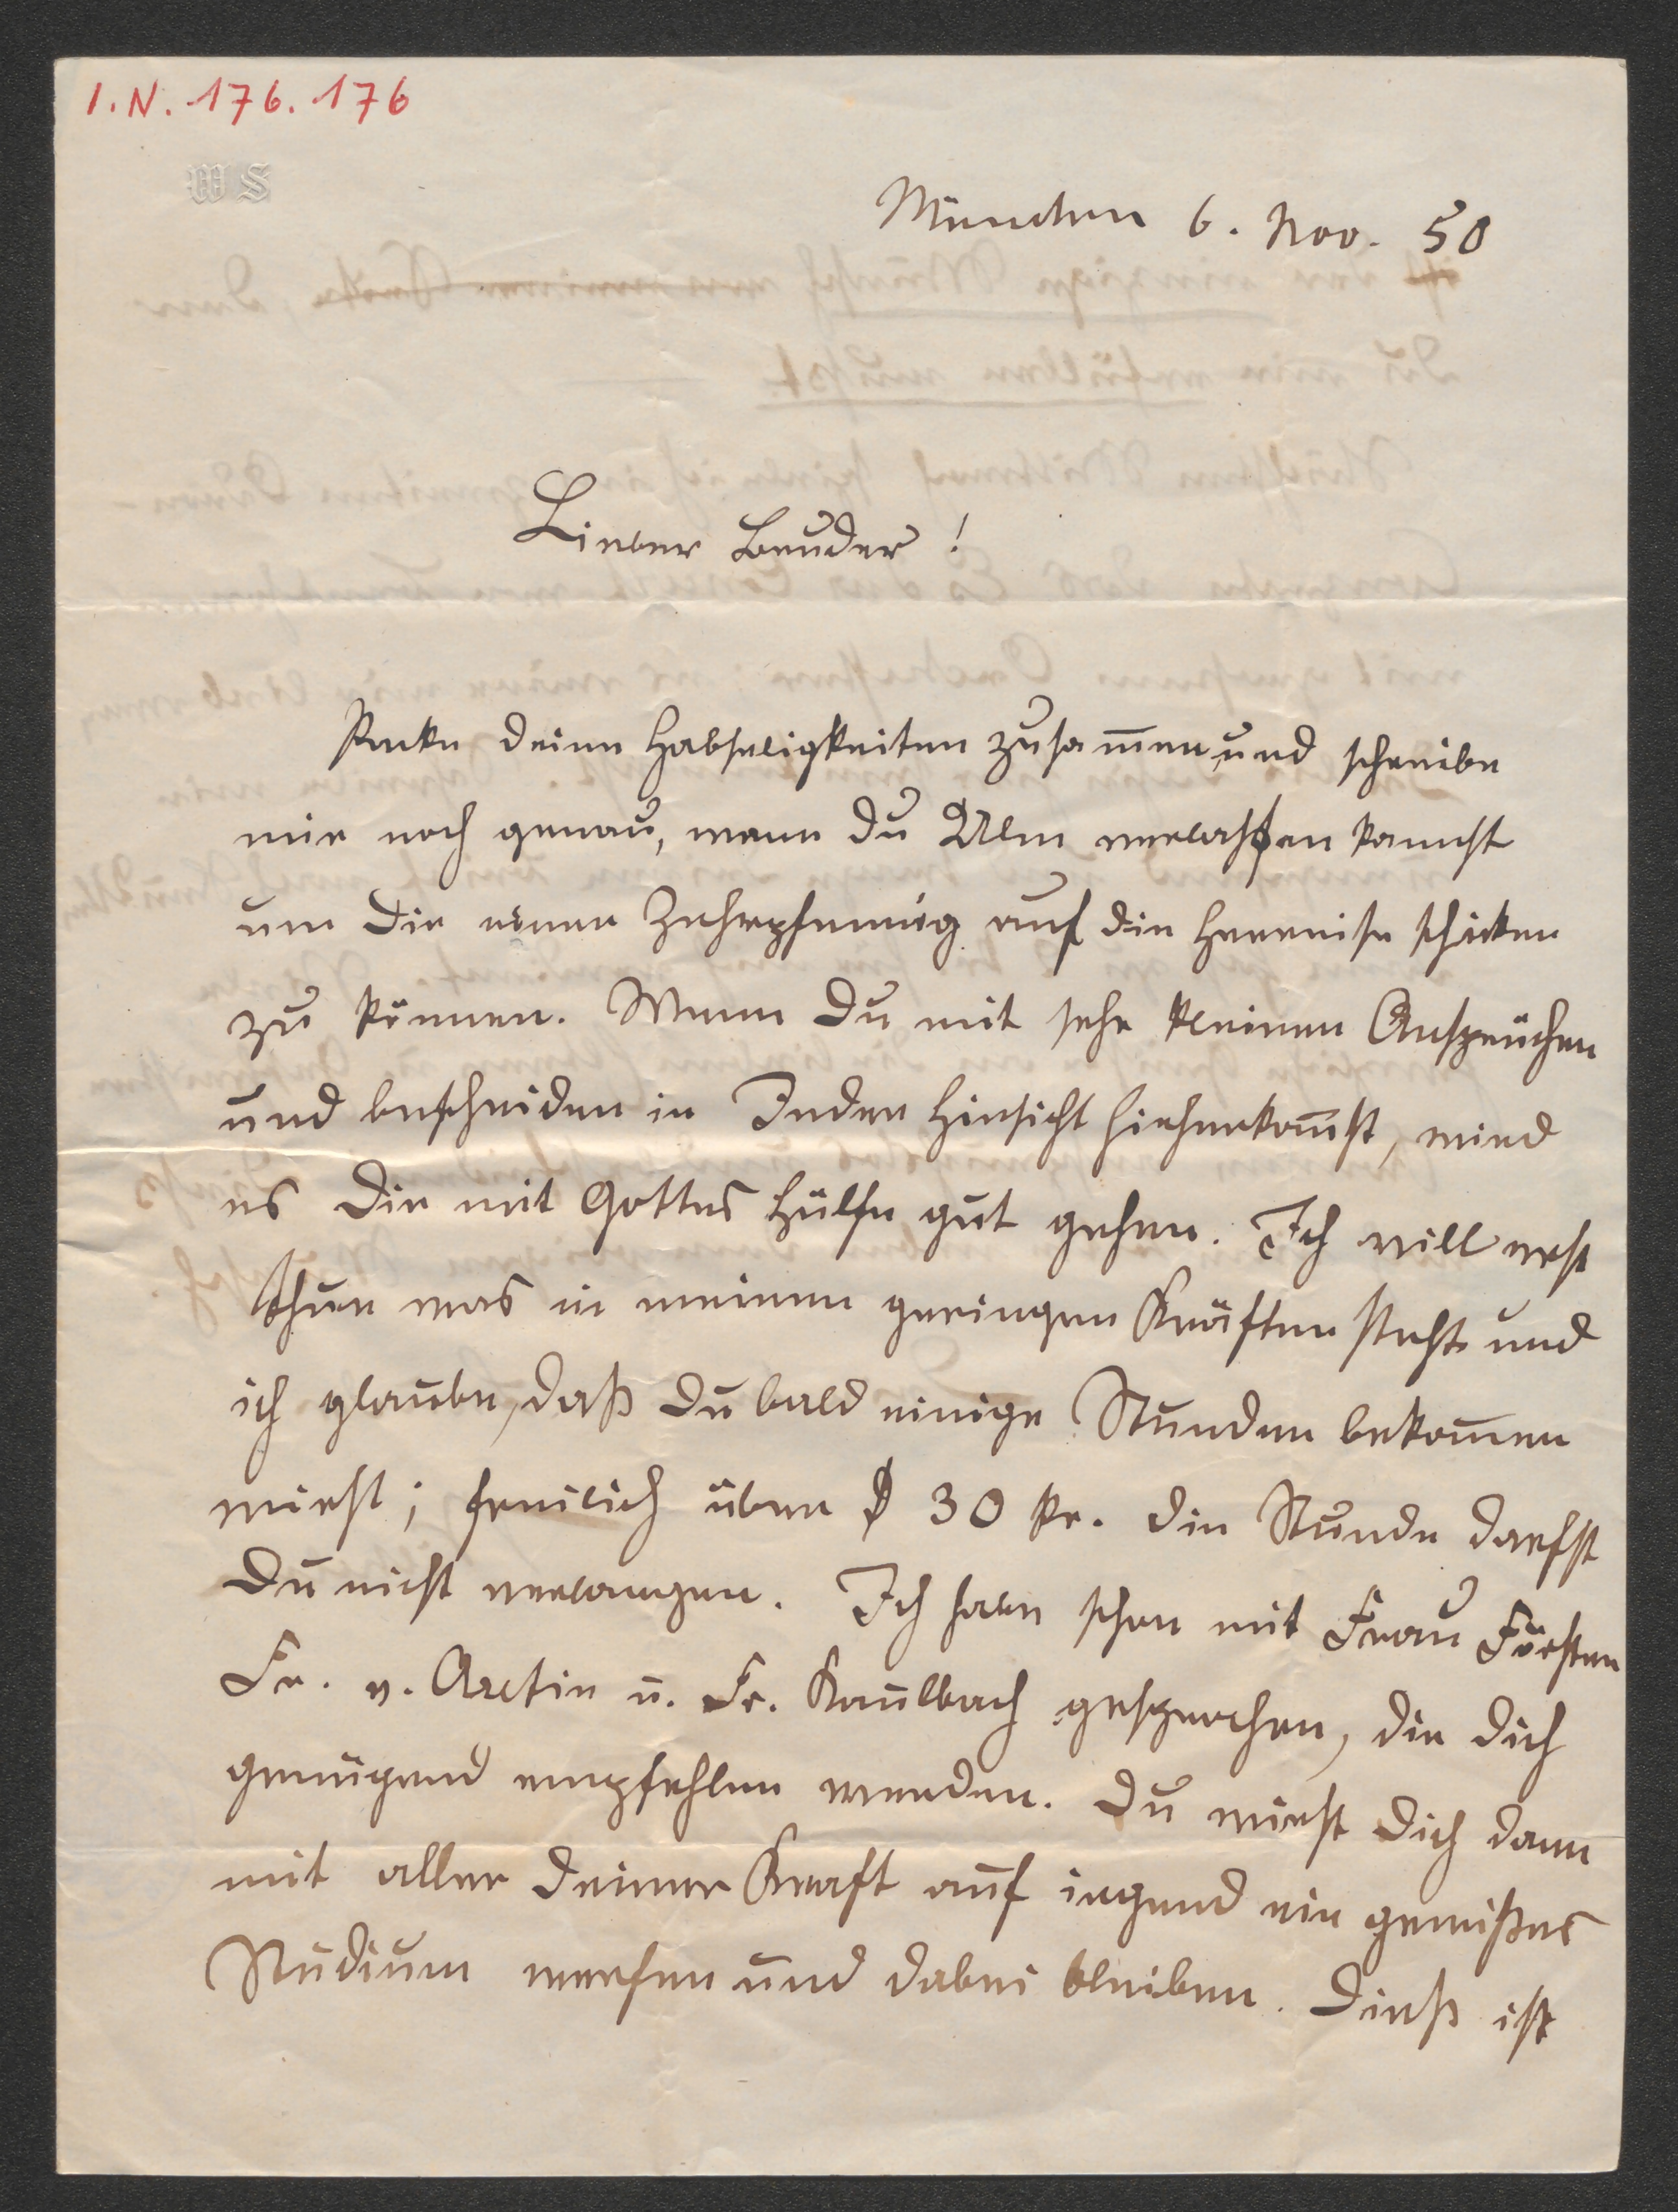 I.N. 176.176
WS
München 6. Nov. 50
Lieber Bruder!
Packe deine Habseligkeiten zusam̅en, und schreibe
mir noch genau, wann du Ulm verlassen kannst
um Dir einen Zehrpfennig auf die Herreise schicken
zu können. Wenn Du mit sehr kleinen Ansprüchen
und bescheiden in Jeder Hinsicht hieherkom̅st, wird
es Dir mit Gottes Hülfe gut gehen. Ich will erst
thun was in meinen geringen Kräften steht und
ich glaube, daß Du bald einige Stunden bekom̅en
wirst; freilich über 30 kr. die Stunde darfst
Du nicht verlangen. Ich habe schon mit Frau Förster
Fr. v. Aretin u. Fr. Kaulbach gesprochen, die Dich
genügend empfehlen werden. Du wirst Dich dann
mit aller Deiner Kraft auf irgend ein gewißes
Studium werfen und dabei bleiben. Dieß ist